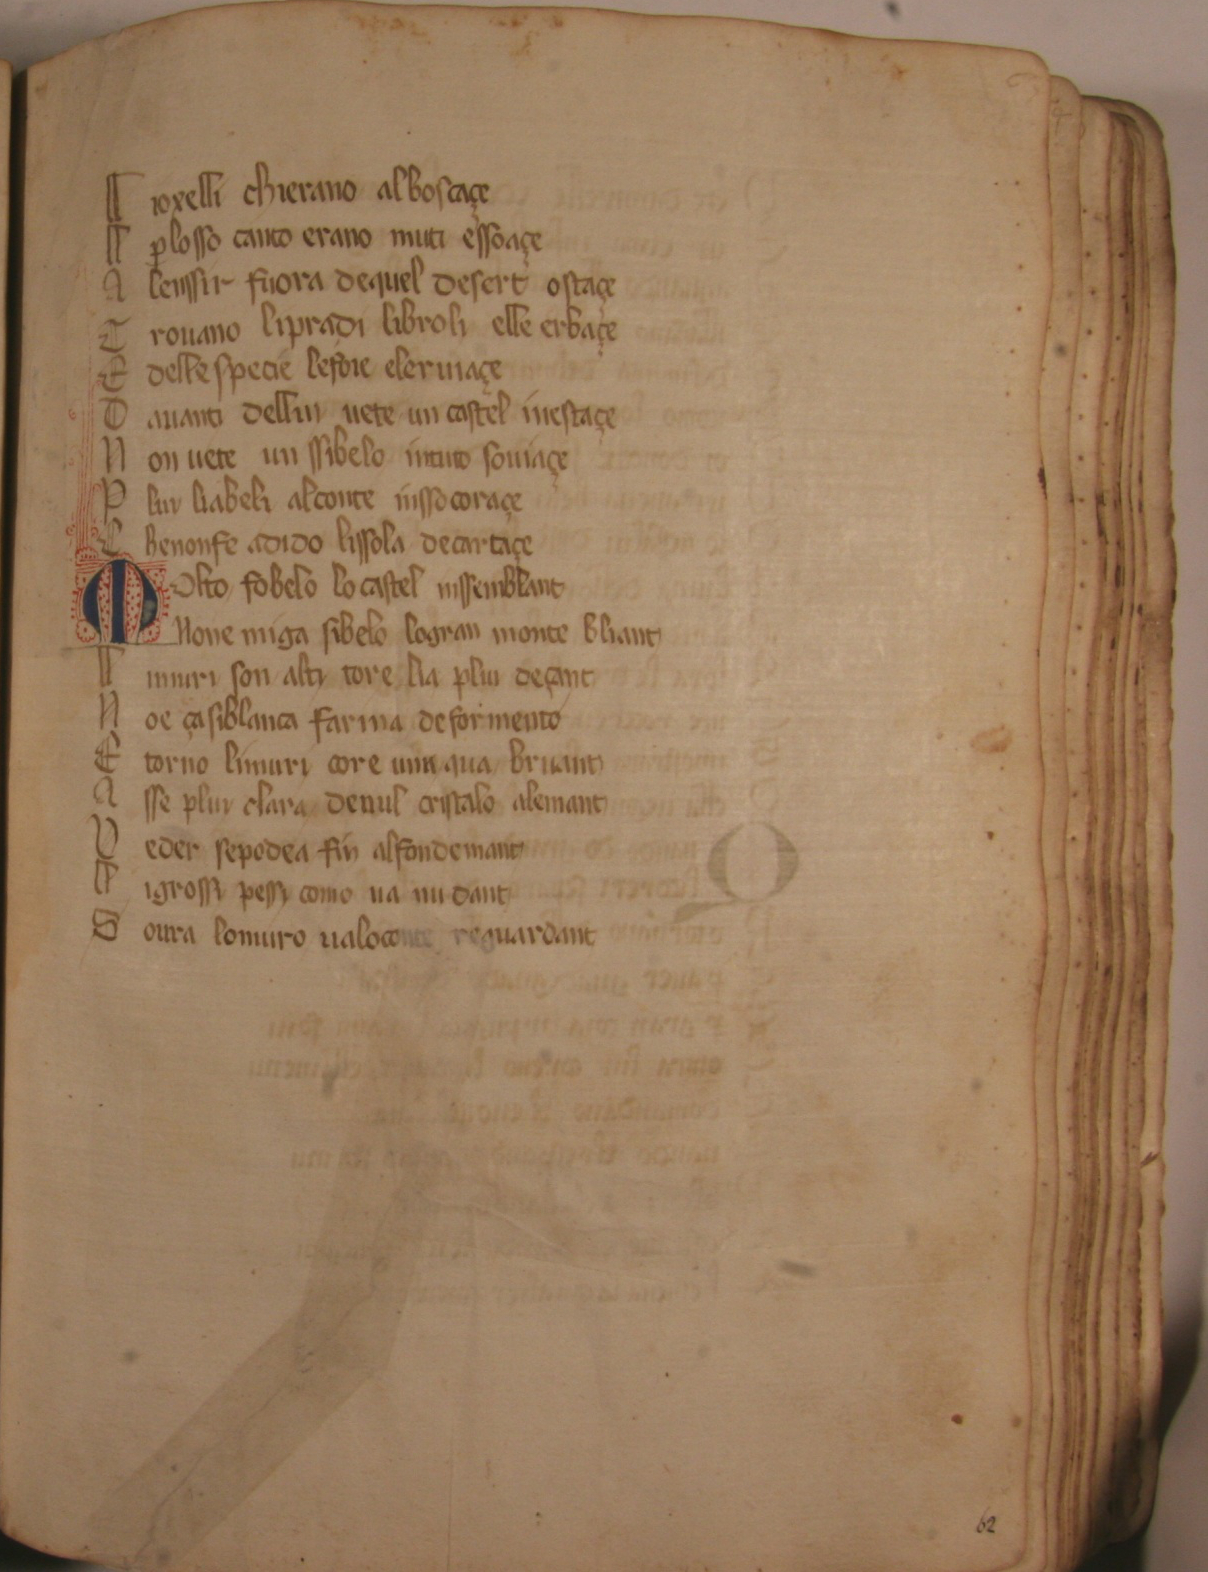 L ioxelli chierano alboscaçe
L ꝑlosso canto erano muti essoaçe
A lenssir fuora dequel desert ostaçe
T rouano lipradi libroli elle erbaçe
E delle specie lefoie elermaçe
D auanti dellui uete un castel inestaçe
N on uete un ssibelo intuto souiaçe
P lui liabeli alconte inssocoraçe
C henonfe adido lissola decartaçe
M Olto fobelo lo castel inssemblant
None miga sibelo logran monte bliant
L imuri son alti tore lia plui deçant
N oe çasiblanca farina deformento
E torno limuri core unaqua bruant
A sse plui clara denul cristalo alemant
V eder sepodea fin alfondemant
L igrossi pessi como ua nudant
S oura lomuro ualoconte reguardant
62